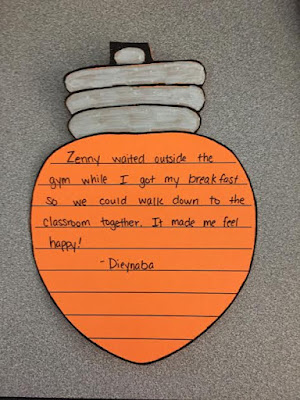 Zenny waited outside the
gym while I got my breakfast
so we could walk down to the
classroom together. It made me feel
happy!
- Dieynaba